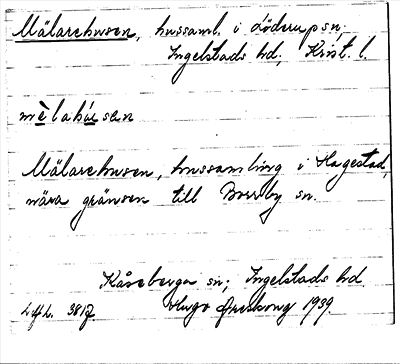 Mälarehusen, hussaml. i Löderup sn;
Ingelstads hd, Krist. l.
mèlahúsen
Mälarehusen, hussamling i Hagestad,
nära gränsen till Borrby sn.
Kåseberga sn; Ingelstads hd
Hugo Areskoug 1939.